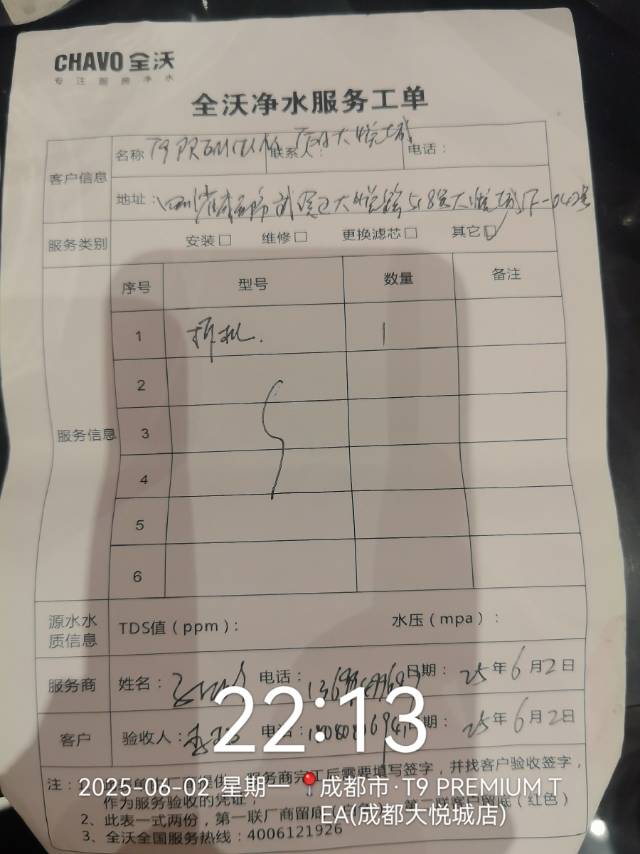 CHAVO 全沃
专注商用净水
全沃净水服务工单
客户信息
名称 T9 PREMIUM 联系人: 成都大悦城 电话:
地址: 四川省成都市武侯区大悦路518号大悦城
服务类别 安装□ 维修□ 更换滤芯□ 其它☑
服务信息
序号 型号 数量 备注
1 拆机. 1
2
3
4
5
6
源水水质信息 TDS值(ppm): 水压(mpa):
服务商 姓名: 电话: 日期: 25年6月2日
客户 验收人: 电话: 日期: 25年6月2日
22:13
2025-06-02 星期一 成都市·T9 PREMIUM T
EA(成都大悦城店)
注: 服务商完工后需要填写签字,并找客户验收签字,
作为服务验收的凭证;
2、此表一式两份,第一联厂商留底 第二联客户留底(红色)
3、全沃全国服务热线:4006121926